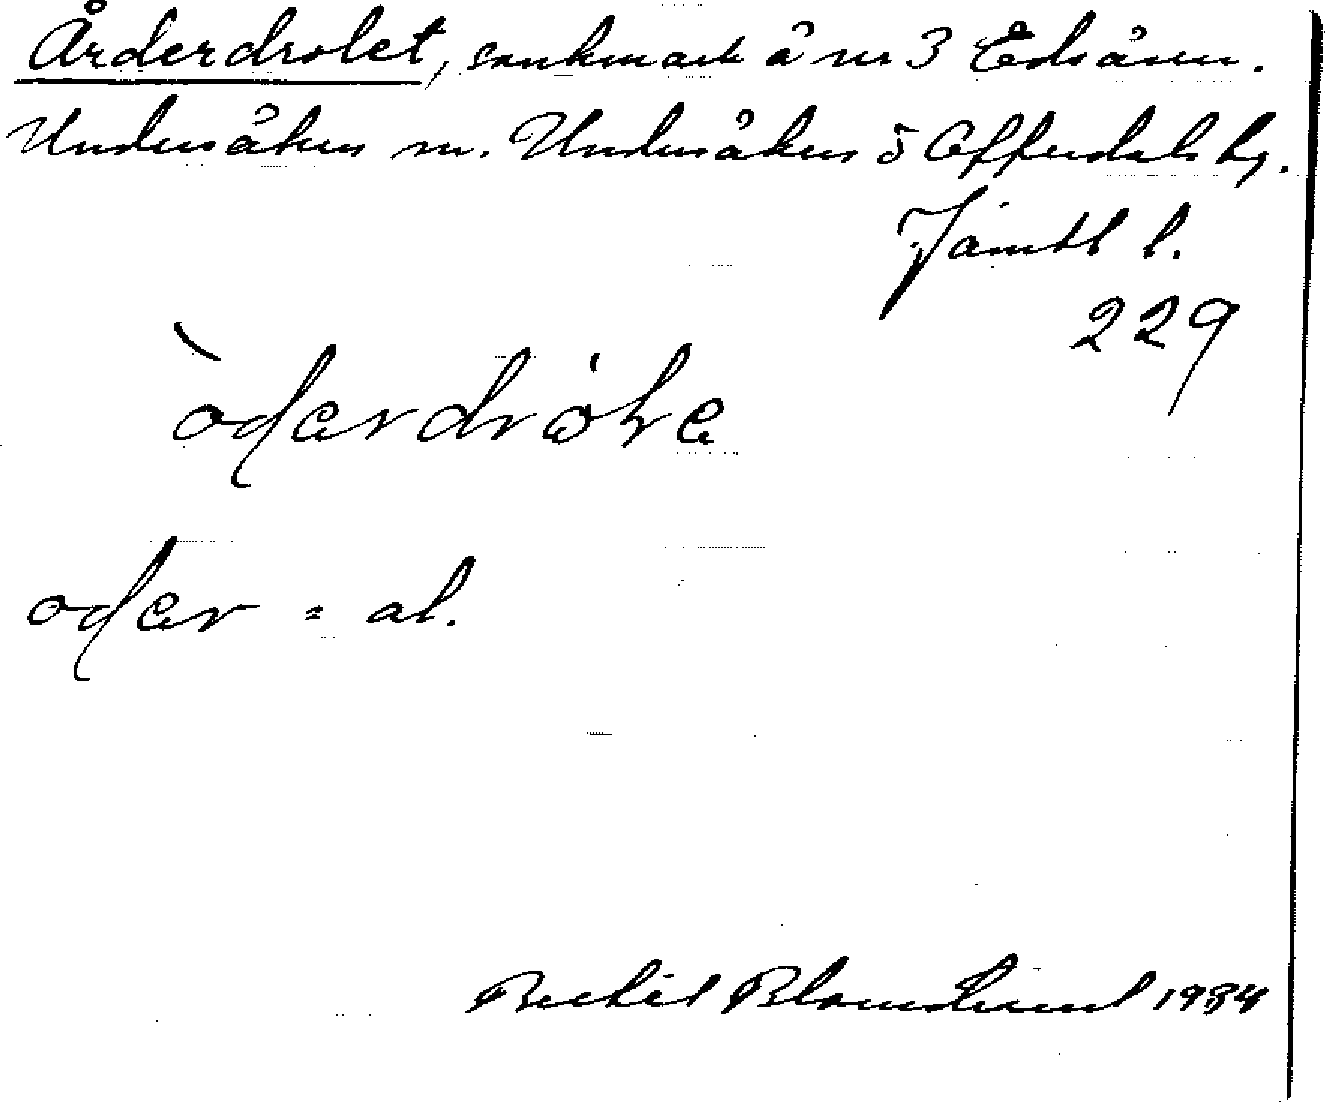 Årderdrolet, sankmark å nr 3 Edsåsen.
Undersåkers sn. Undersåkers o Offerdals hg.
Jämtl l.
229
òđerdròḱe
ođer = al.
Bertil Blomstrand 1934